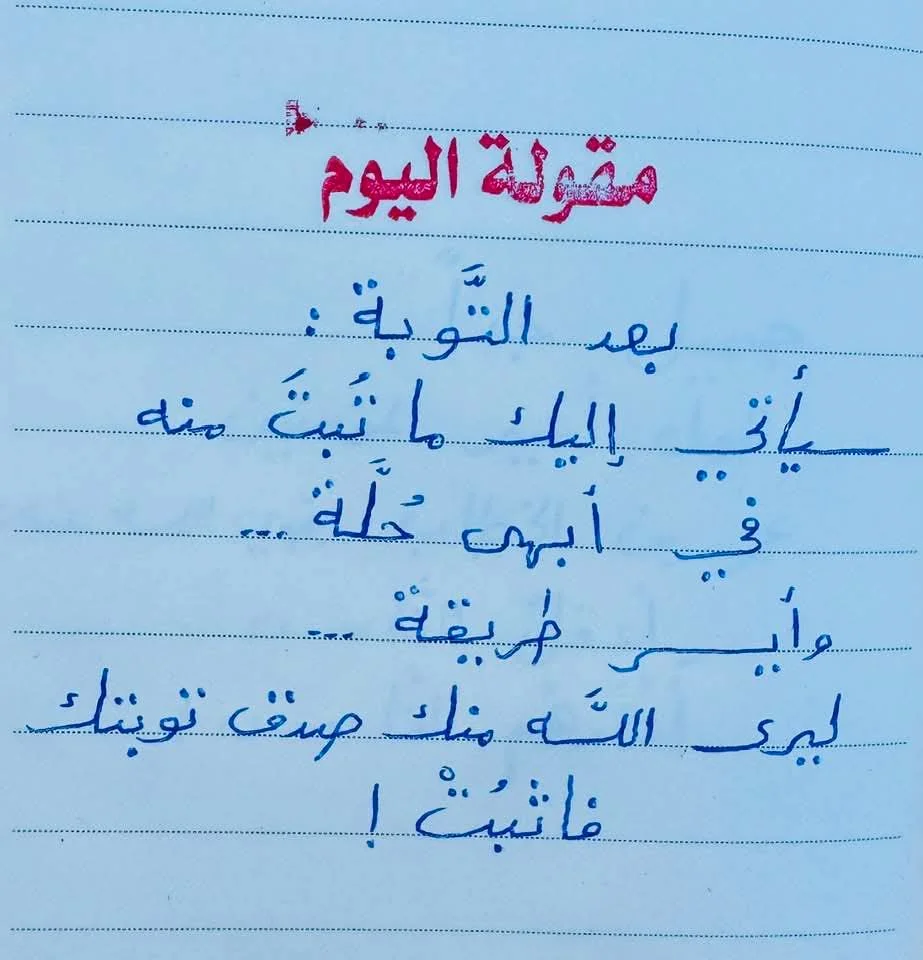 مقولة اليوم
بعد التَّوبة :
سيأتي إليك ما تُبتَ منه
في أبهى حُلَّة ...
وأيسر طريقة ...
ليرى اللَّه منك صدق توبتك
فاثبُتْ !